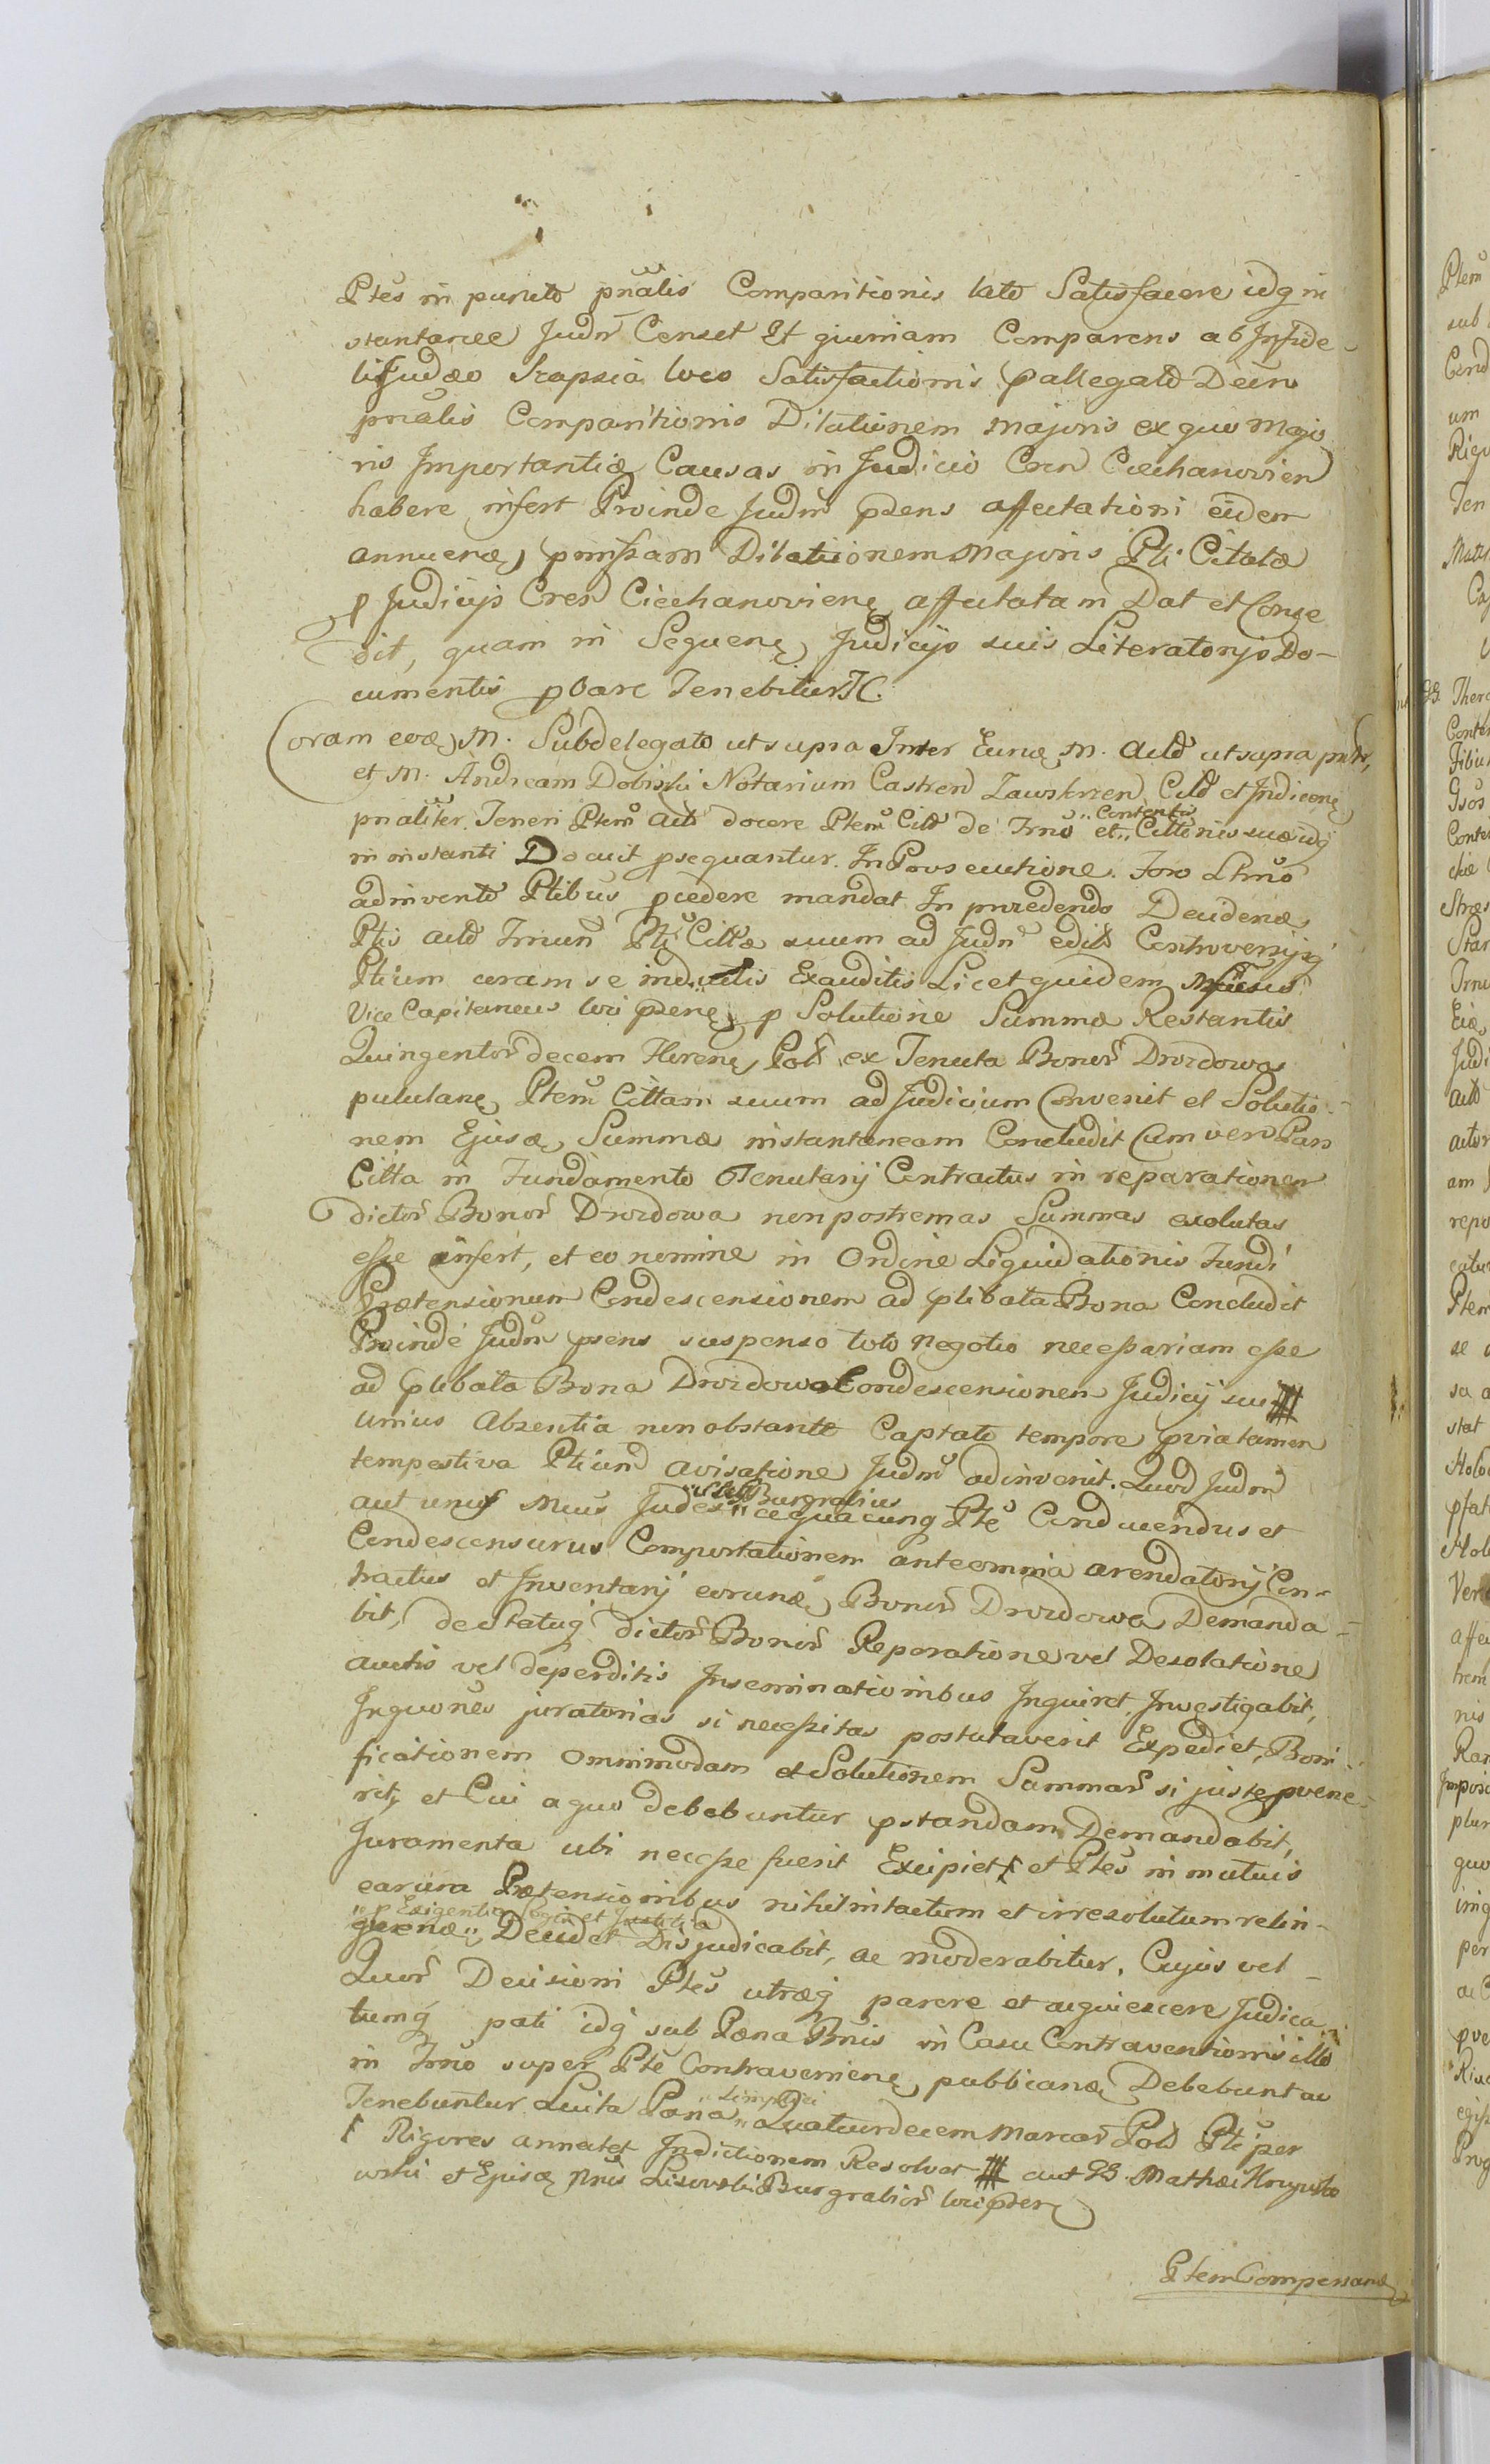 Ptes in puncto pnalis Comparitionis lato Satisfacere idq in
stantanee Judm Censet Et quiniam Comparens ab Infide-
li Judæo Srapsia loco Satisfactionis p allegato Decno
pnalis Comparitionis Dilationem majoris ex quo Majo
ris Importantiæ Causas in Judicio Cren Ciechanovien
habere infert Proinde Judm psens affectationi eidem
annuens, pmissam Dilationem Majoris Pti Citatæ
p Judicijs Cren Ciechanoviens affectatam Dat et Conce
dit, quam in Sequens Judicijs suis Literatorijs Do-
cumentis pbare Tenebitur
Coram eod M. Subdelegato ut supra Inter Eund M. Actd ut supra
et M. Andream Dobiski Notarium Castren Zawskrzen Citd et Indicens
pnaliter. Teneri Ptem Actd docere Ptem Citd de Trno et Contentis Cittonis suæ idq
in instanti Docuit psequantur. In Prosecutione. Foro Ltmo
adinvento Ptibus pcedere mandat In pncedendo Decidens
Ptis actd Trnum Pti Cittæ suum ad Judm editd Controversijsq
Ptium coram se inductis Exauditis Licet quidem Mficus
Vice Capitaneus loci psens p Solutione Summæ Restantis
Quingentor decem Floren Pol ex Tenuta Bonor Drozdowo
pululans Ptem Cittam suum ad Judicium Convenit et Solutio-
nem Ejusd Summæ instantaneam Concludit Cum vero Pars
Citta in Fundamento Tenutarij Contractus in reparationem
dictor Bonor Drozdowa non postremas Summas exolutas
esse infert, et eo nomine in Ordine Liquidationis Fundi
Prætensionum Condescensionem ad plibata Bona Concludit
Proinde Judm psens suspenso toto negotio necessariam esse
ad plibata Bona Drozdowo Condescensionem Judicij sui
unius Absentia non obstante Captato tempore pvia tamen
tempestiva Ptium avisatione Judm adinvenit. Quod Judm
aut unus Mcus Judex vel Burgrabius a quacunq Pte Conducendus et
Condescensurus Comportationem ante omnia arendatorij Con-
tractus et Inventarij eorund Bonor Drozdowa Demanda-
bit, de Statuq dictor Bonor Reparatione vel Desolatione
auctis vel deperditis Inseminationibus Inquiret, Investigabit,
Inquones juratorias si necessitas postulaverit Expediet, Boni
ficationem omnimodam et Solutionem Summar si juste pvene-
rit, et Cui a quo debebuntur pstandam Demandabit,
Juramenta ubi necesse fuerit Excipiet et Ptes in mutuis
earum Prætensionibus nihil intactum et irresolutum relin-
p Exigentia Legis et Justitia
quend Decidet Disjudicabit, ac moderabitur. Cujus vel
Quor Decisioni Ptes utræq parere et acquiescere Judica
tumq pati idq sub Pœna Bnis in Casu Contraventionis illo
in Trno super Pte Contraveniens publicand Debebunt ac
Tenebuntur Luita Pœna simplici Quatuordecem Marcar Pol Pti per
Rigores annectet Indictionem Resolvet aut GG. Mathæi
et Ejusd Lisowski Burgrabior loci psen
Ptem Compensand